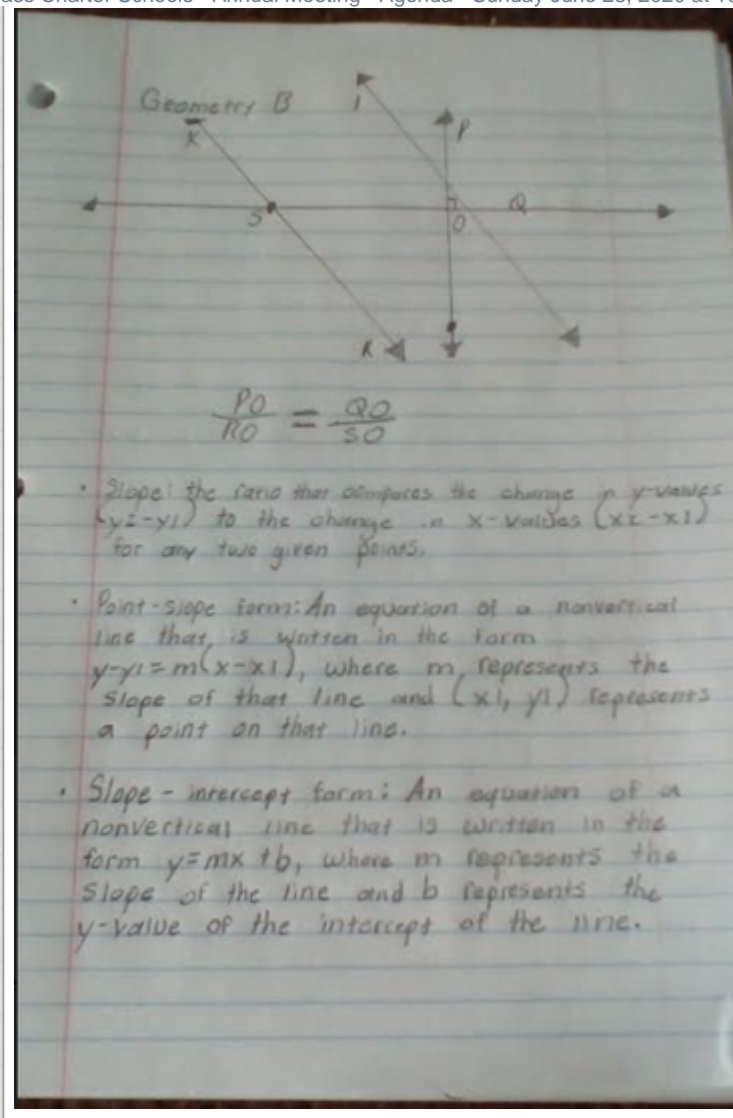 ass Charter Schools - Annual Meeting - Agenda - Sunday June 28, 2020 at
Geometry B
P
S
O
Q
PO/RO = QO/SO
• Slope: the ratio that compares the change in y-values
(y2-y1) to the change in x-values (x2-x1)
for any two given points.
• Point-slope form: An equation of a nonvertical
line that is written in the form
y-y1=m(x-x1), where m represents the
slope of that line and (x1, y1) represents
a point on that line.
• Slope-intercept form: An equation of a
nonvertical line that is written in the
form y=mx+b, where m represents the
slope of the line and b represents the
y-value of the intercept of the line.